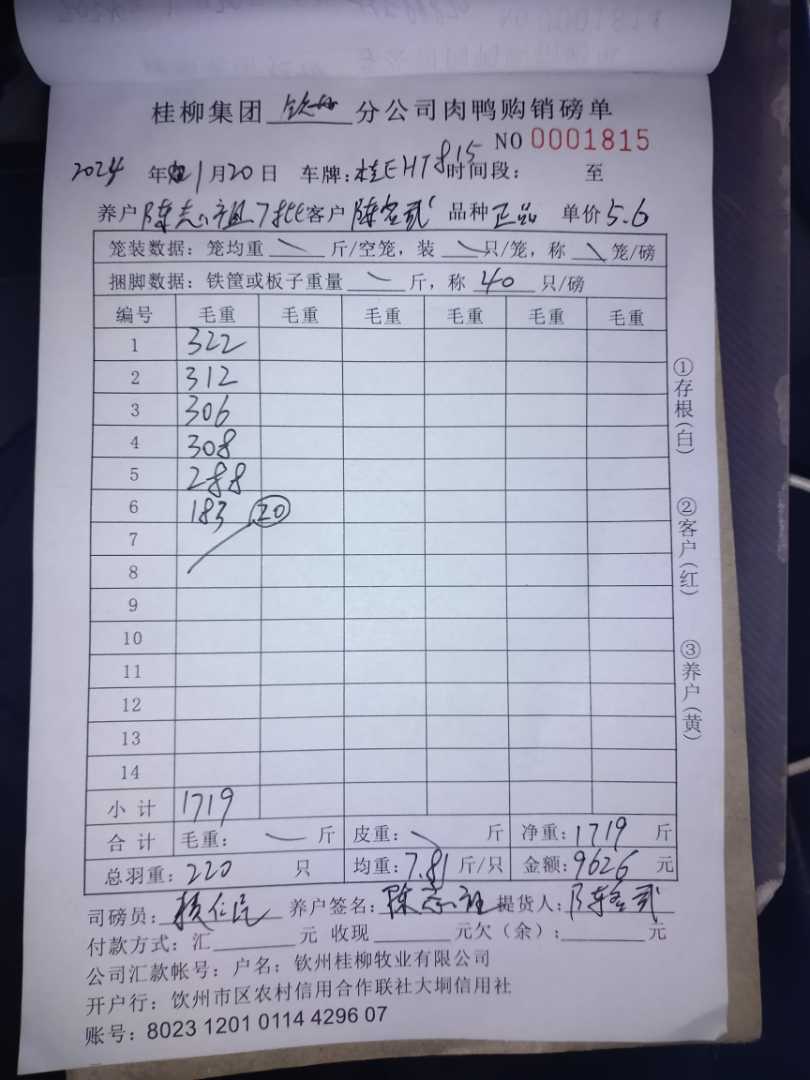 桂柳集团 钦州 分公司肉鸭购销磅单
NO 0001815
2024 年 1月20日 车牌:桂EHT815 时间段: 至
养户 陈志祖 客户 陈 武 品种 正品 单价 5.6
笼装数据:笼均重 斤/空笼,装 只/笼,称 笼/磅
捆脚数据:铁筐或板子重量 斤,称 40 只/磅
编号 毛重 毛重 毛重 毛重 毛重 毛重
1 322
2 312
3 306
4 308
5 288
6 183 20
7
8
9
10
11
12
13
14
小计 1719
合计 毛重: 斤 皮重: 斤 净重:1719 斤
总羽重:220 只 均重:7.81 斤/只 金额:9626 元
司磅员: 养户签名:陈志祖 提货人:陈 武
付款方式:汇 元 收现 元欠(余): 元
公司汇款帐号:户名:钦州桂柳牧业有限公司
开户行:饮州市区农村信用合作联社大垌信用社
账号:8023 1201 0114 4296 07
①存根(白)
②客户(红)
③养户(黄)